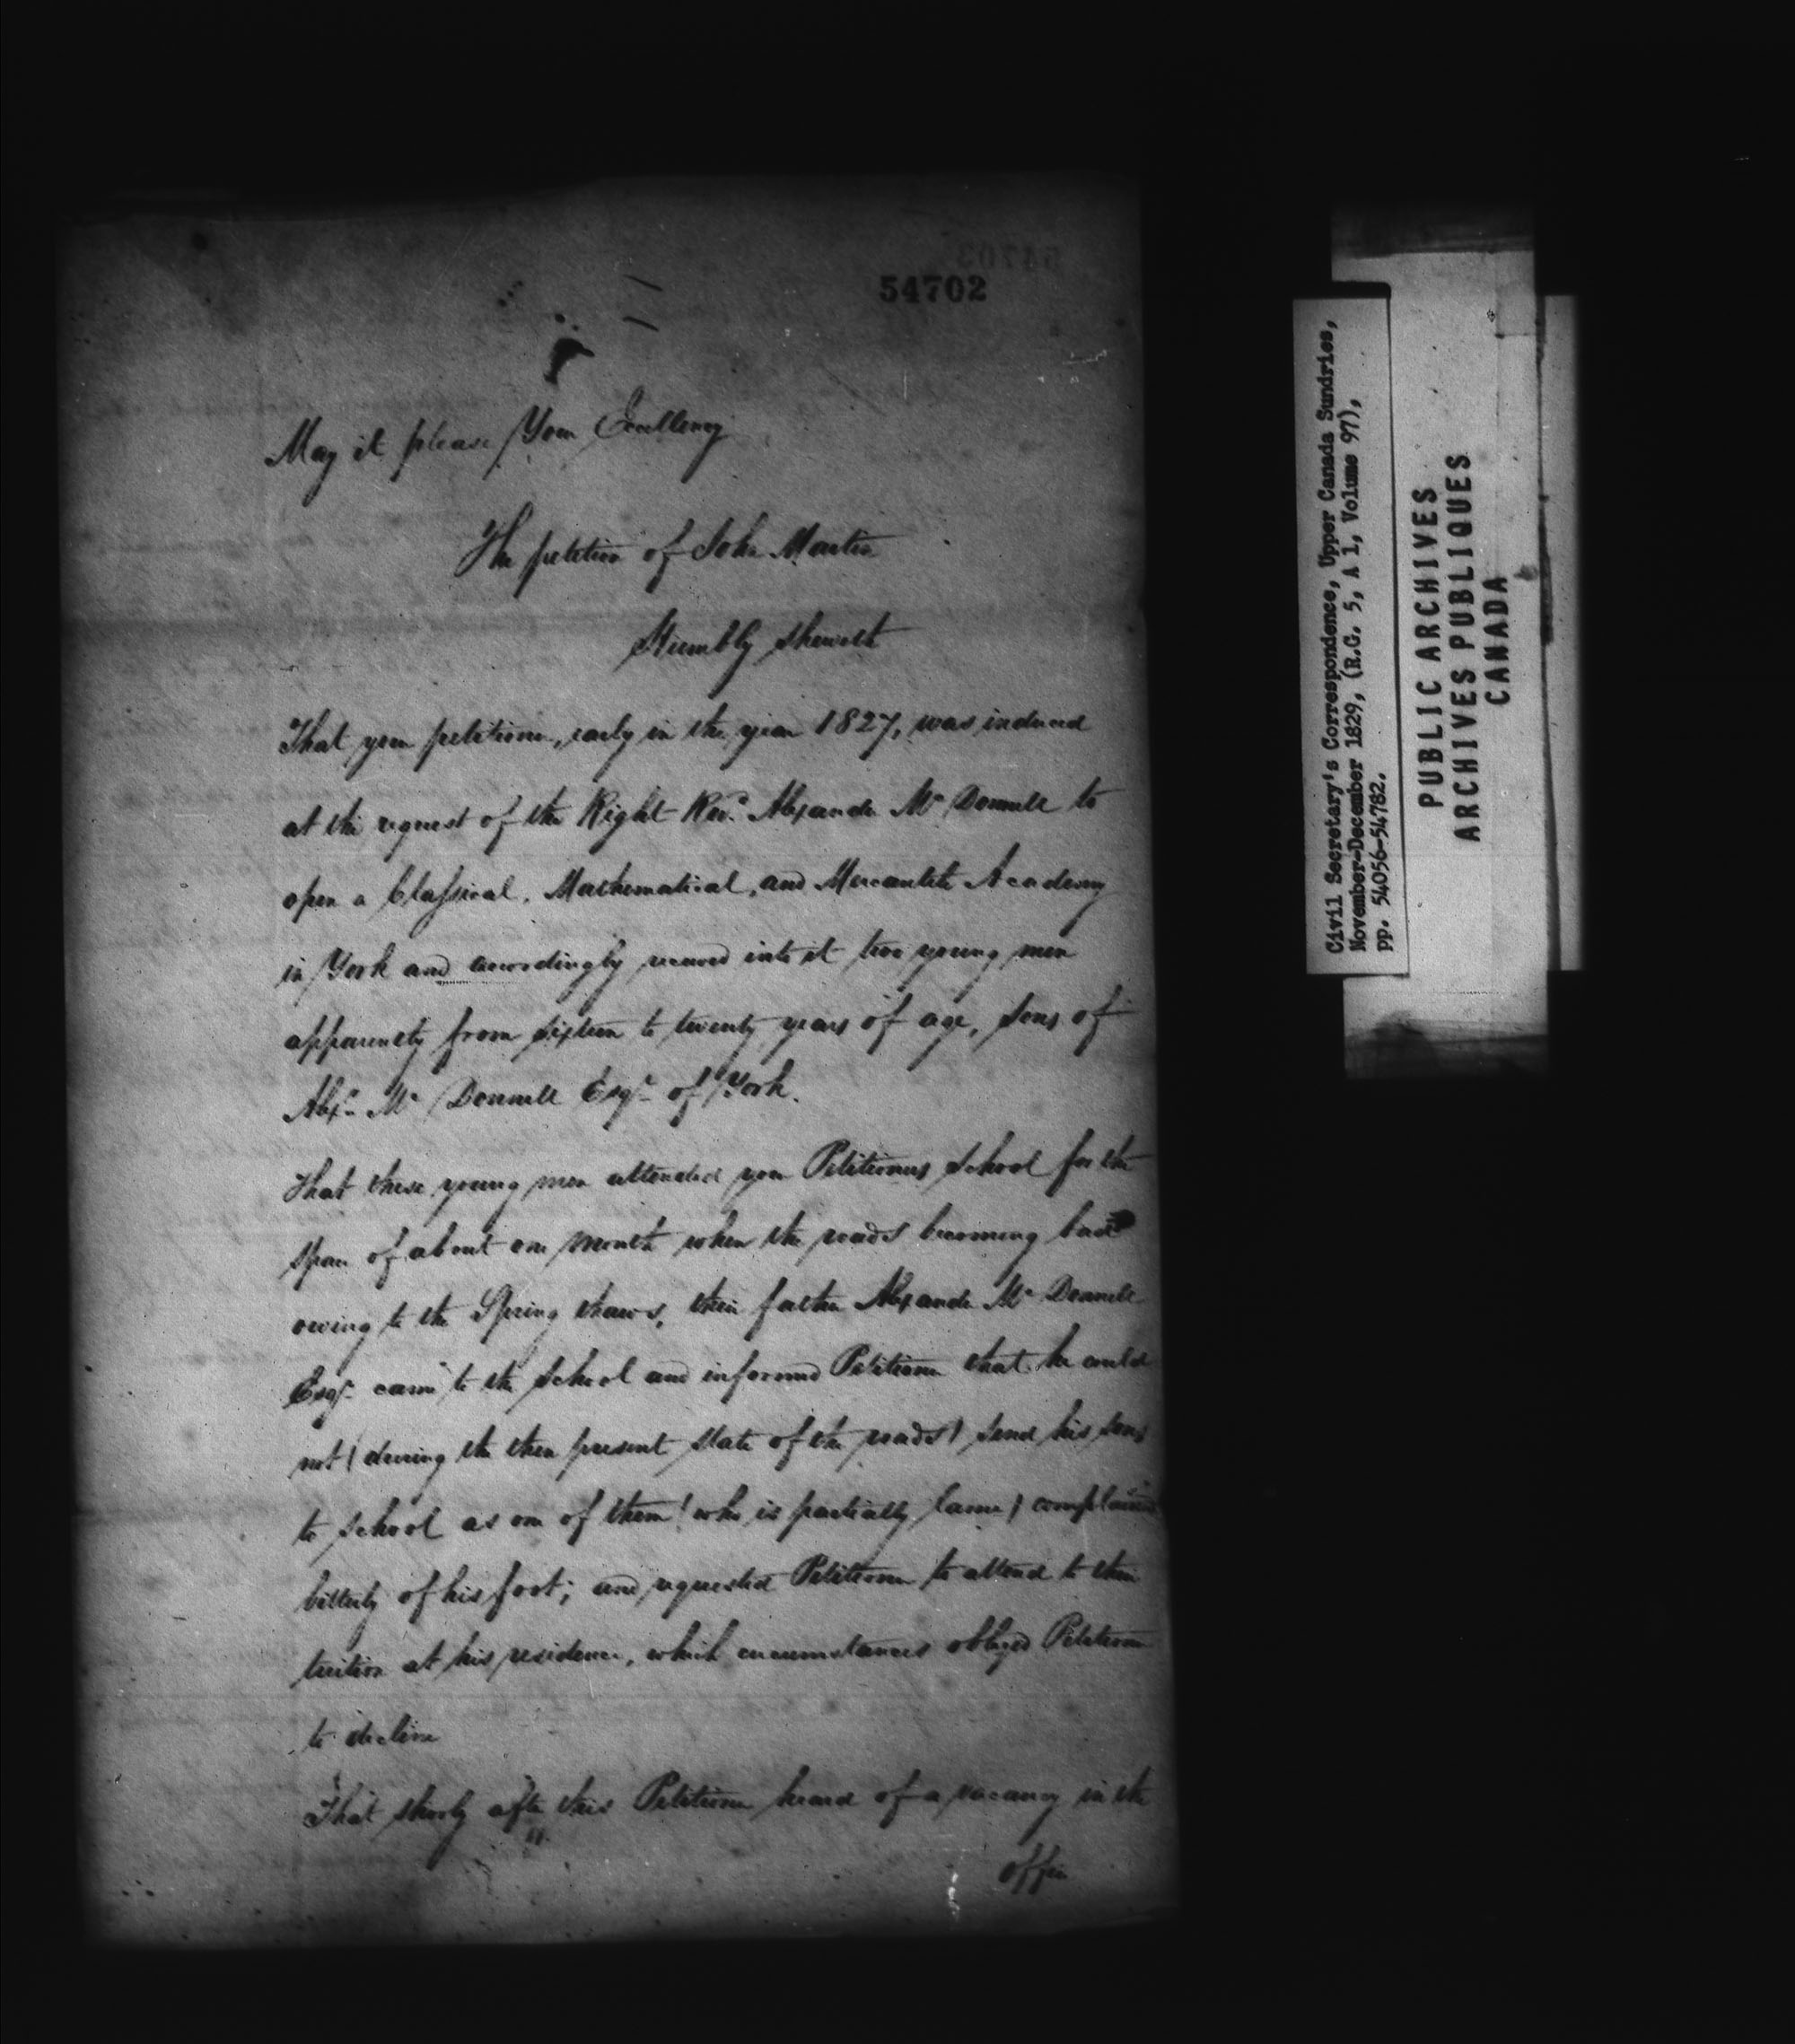 54702
May it please Your Excellency
The petition of John Martin
Humbly sheweth
That your petitioner, early in the year 1827, was induced
at the request of the Right Revd. Alexander Mc Donnell to
open a Classical, Mathematical, and Mercantile Academy
in York and accordingly received into it two young men
apparently from sixteen to twenty years of age, sons of
Alexr. Mc Donnell Esqr. of York.
That these young men attended your Petitioners School for the
space of about one month when the roads becoming bad
owing to the Spring thaws, their father Alexander Mc Donnell
Esqr. came to the School and informed Petitioner that he could
not (during the then present state of the roads) send his sons
to school as one of them (who is partially lame) complained
bitterly of his foot; and requested Petitioner to attend to their
tuition at his residence, which circumstances obliged Petitioner
to decline
That shortly after this Petitioner heard of a vacancy in the
office
Civil Secretary's Correspondence, Upper Canada Sundries,
November-December 1829, (R.G. 5, A 1, Volume 97),
pp. 54056-54782.
PUBLIC ARCHIVES
ARCHIVES PUBLIQUES
CANADA